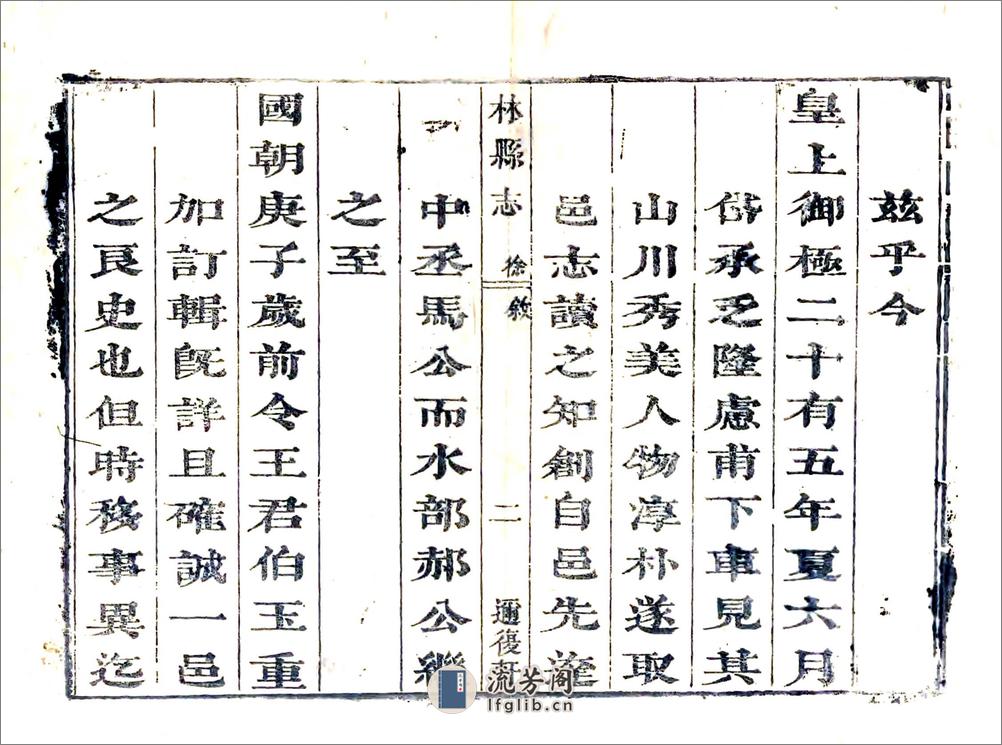 茲乎今
皇上御極二十有五年夏六月
岱承乏隆慮甫下車見其
山川秀美人物淳朴遂取
邑志讀之知創自邑先達
林縣志 徐敘 二 邇復齋
中丞馬公而水部郝公繼
之至
國朝庚子歲前令王君伯玉重
加訂輯既詳且確誠一邑
之良史也但時移事異迄
流芳阁
lfglib.cn